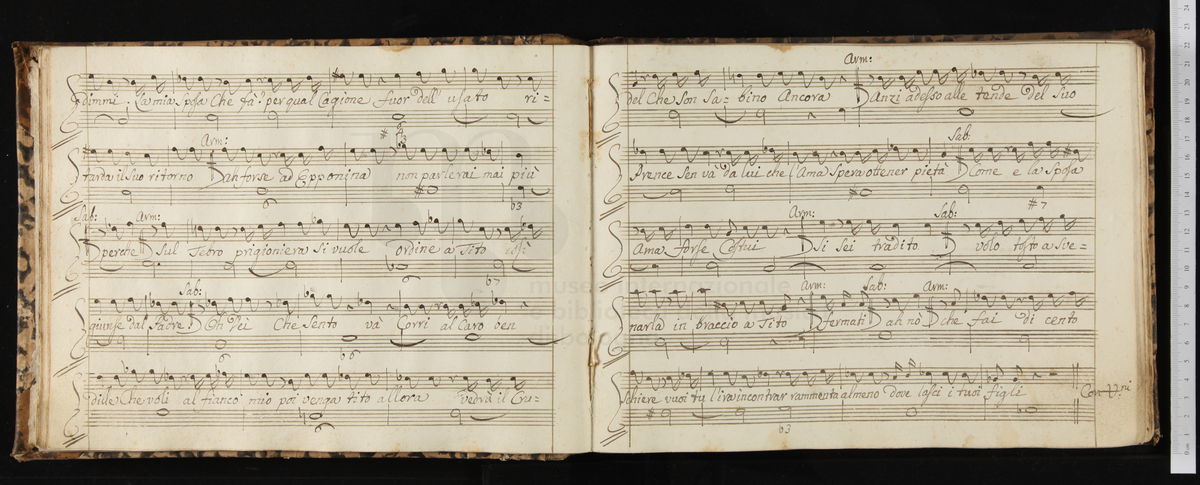 dimmi. La mia sposa che fà? per qual Cagione fuor dell' usato ri=
Arm:
tarda il suo ritorno Dah forse ad Epponina non parlerai mai più
Sab: Arm:
perche Sul Tebro prigioniera si vuole ordine a Tito così
Sab:
giunse dal Padre. Oh Dei Che sento và Corri al Caro ben
dille che voli al fianco mio poi venga tito allora vedrà il Cru=
Arm:
del Che son Sabino Ancora Danzi adesso alle tende del suo
Sab:
Prence sen và da lui che l'Ama spera ottener pietà Come e la Sposa
Arm: Sab:
Ama forse Costui Si sei tradito volo tosto a sve=
Arm: Sab: Arm:
narla in braccio a Tito fermati ah nò che fai di cento
schiere vuoi tu l'ira incontrar rammenta almeno dove lasci i tuoi figli
Con V:ni
museo internazionale
e biblioteca